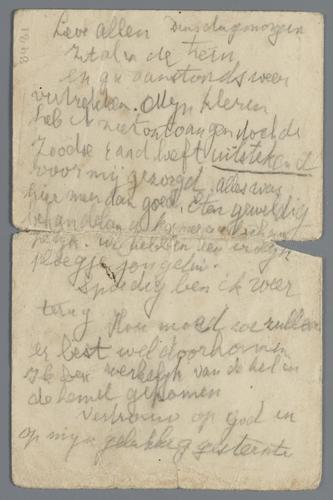 Lieve allen Dinsdagmorgen
Zit al in de trein
en ga aanstonds weer
vertrekken. Mijn kleren
heb ik niet ontvangen doch de
Joodse raad heeft uitstekend
voor mij gezorgd alles was
hier meer dan goed. Eten geweldig
behandeling
We hebben een
ploegje jongelui.
Spoedig ben ik weer
terug Hou moed we zullen
er best wel doorkomen
Ik ben werkelijk van de hel in
de hemel gekomen
Vertrouw op God en
op mijn gelukkig gesternte